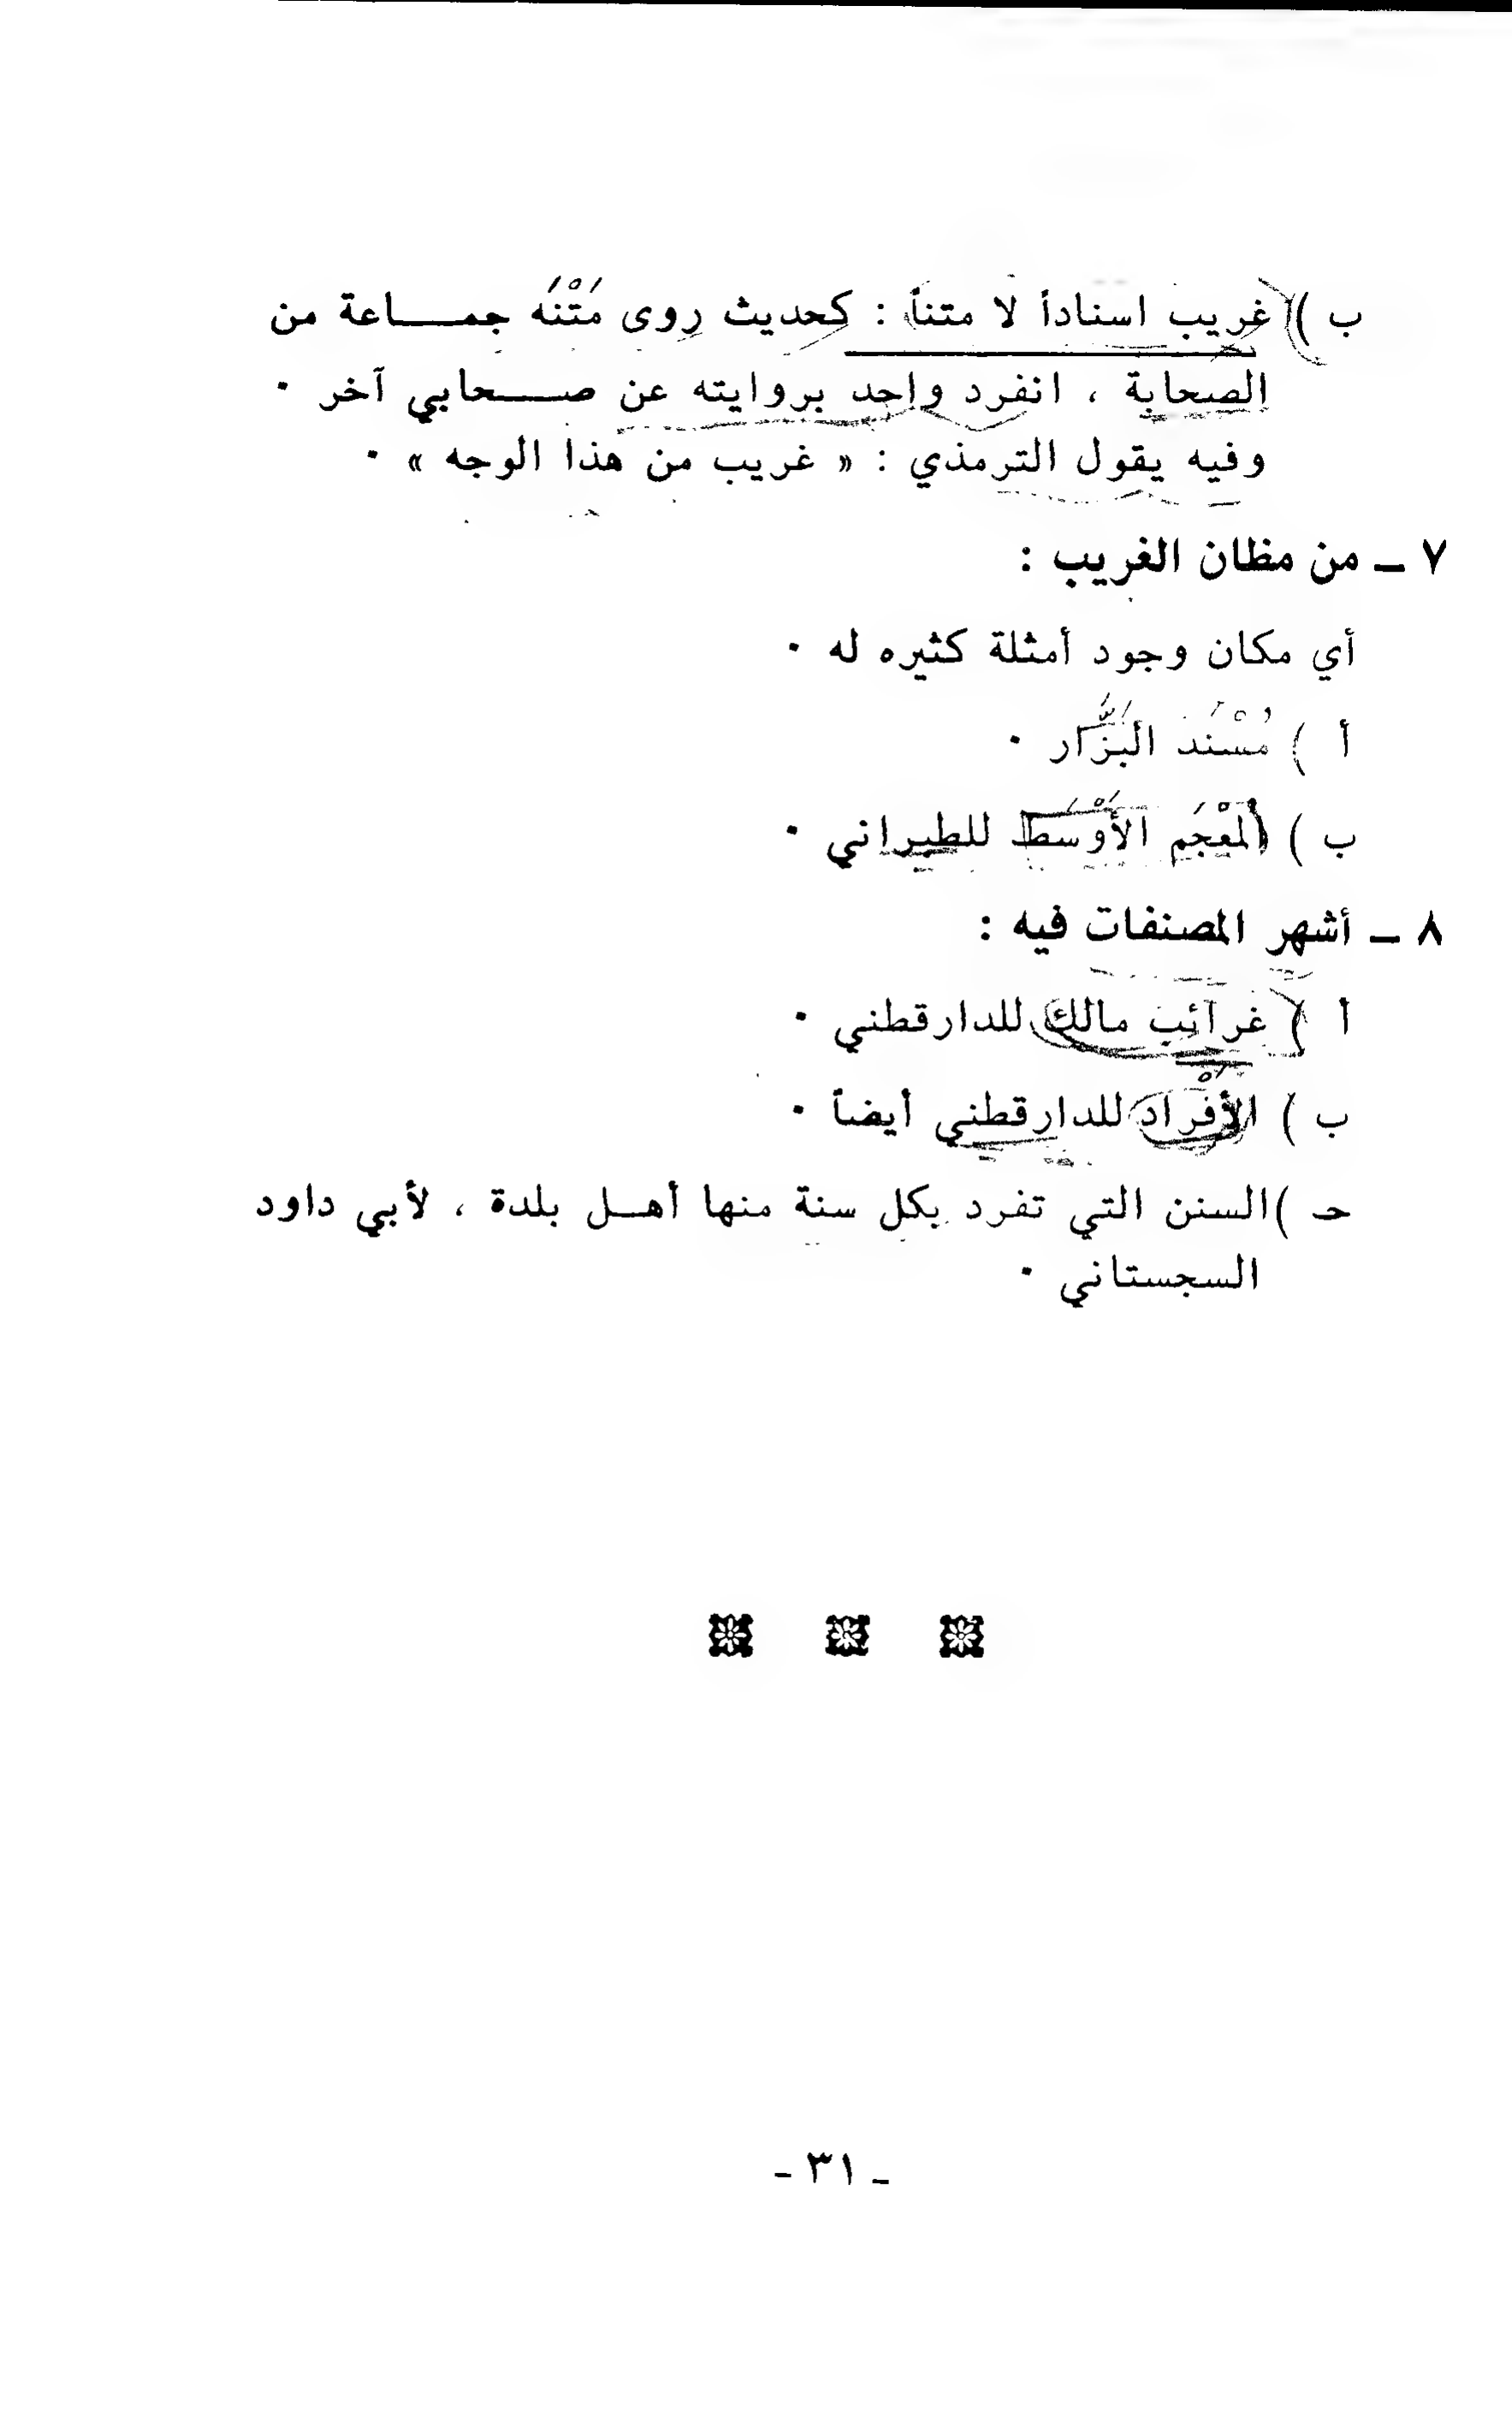 ب ) غريب اسناداً لا متناً : كحديث روى مَتْنَه جمـــاعة من
الصحابة ، انفرد واحد بروايته عن صـــحابي آخر ٠
وفيه يقول الترمذي : « غريب من هذا الوجه » ٠
٧ ـ من مظان الغريب :
أي مكان وجود أمثلة كثيره له ٠
أ ) مُسْنَد البَزَّار ٠
ب ) المْعْجَم الأَوْسَط للطبراني ٠
٨ ـ أشهر المصنفات فيه :
أ ) غرائب مالك للدارقطني ٠
ب ) الأفْرَاد للدارقطني أيضاً ٠
حـ ) السنن التي تفرد بكل سنة منها أهـل بلدة ، لأبي داود
السجستاني ٠
ـ ٣١ ـ